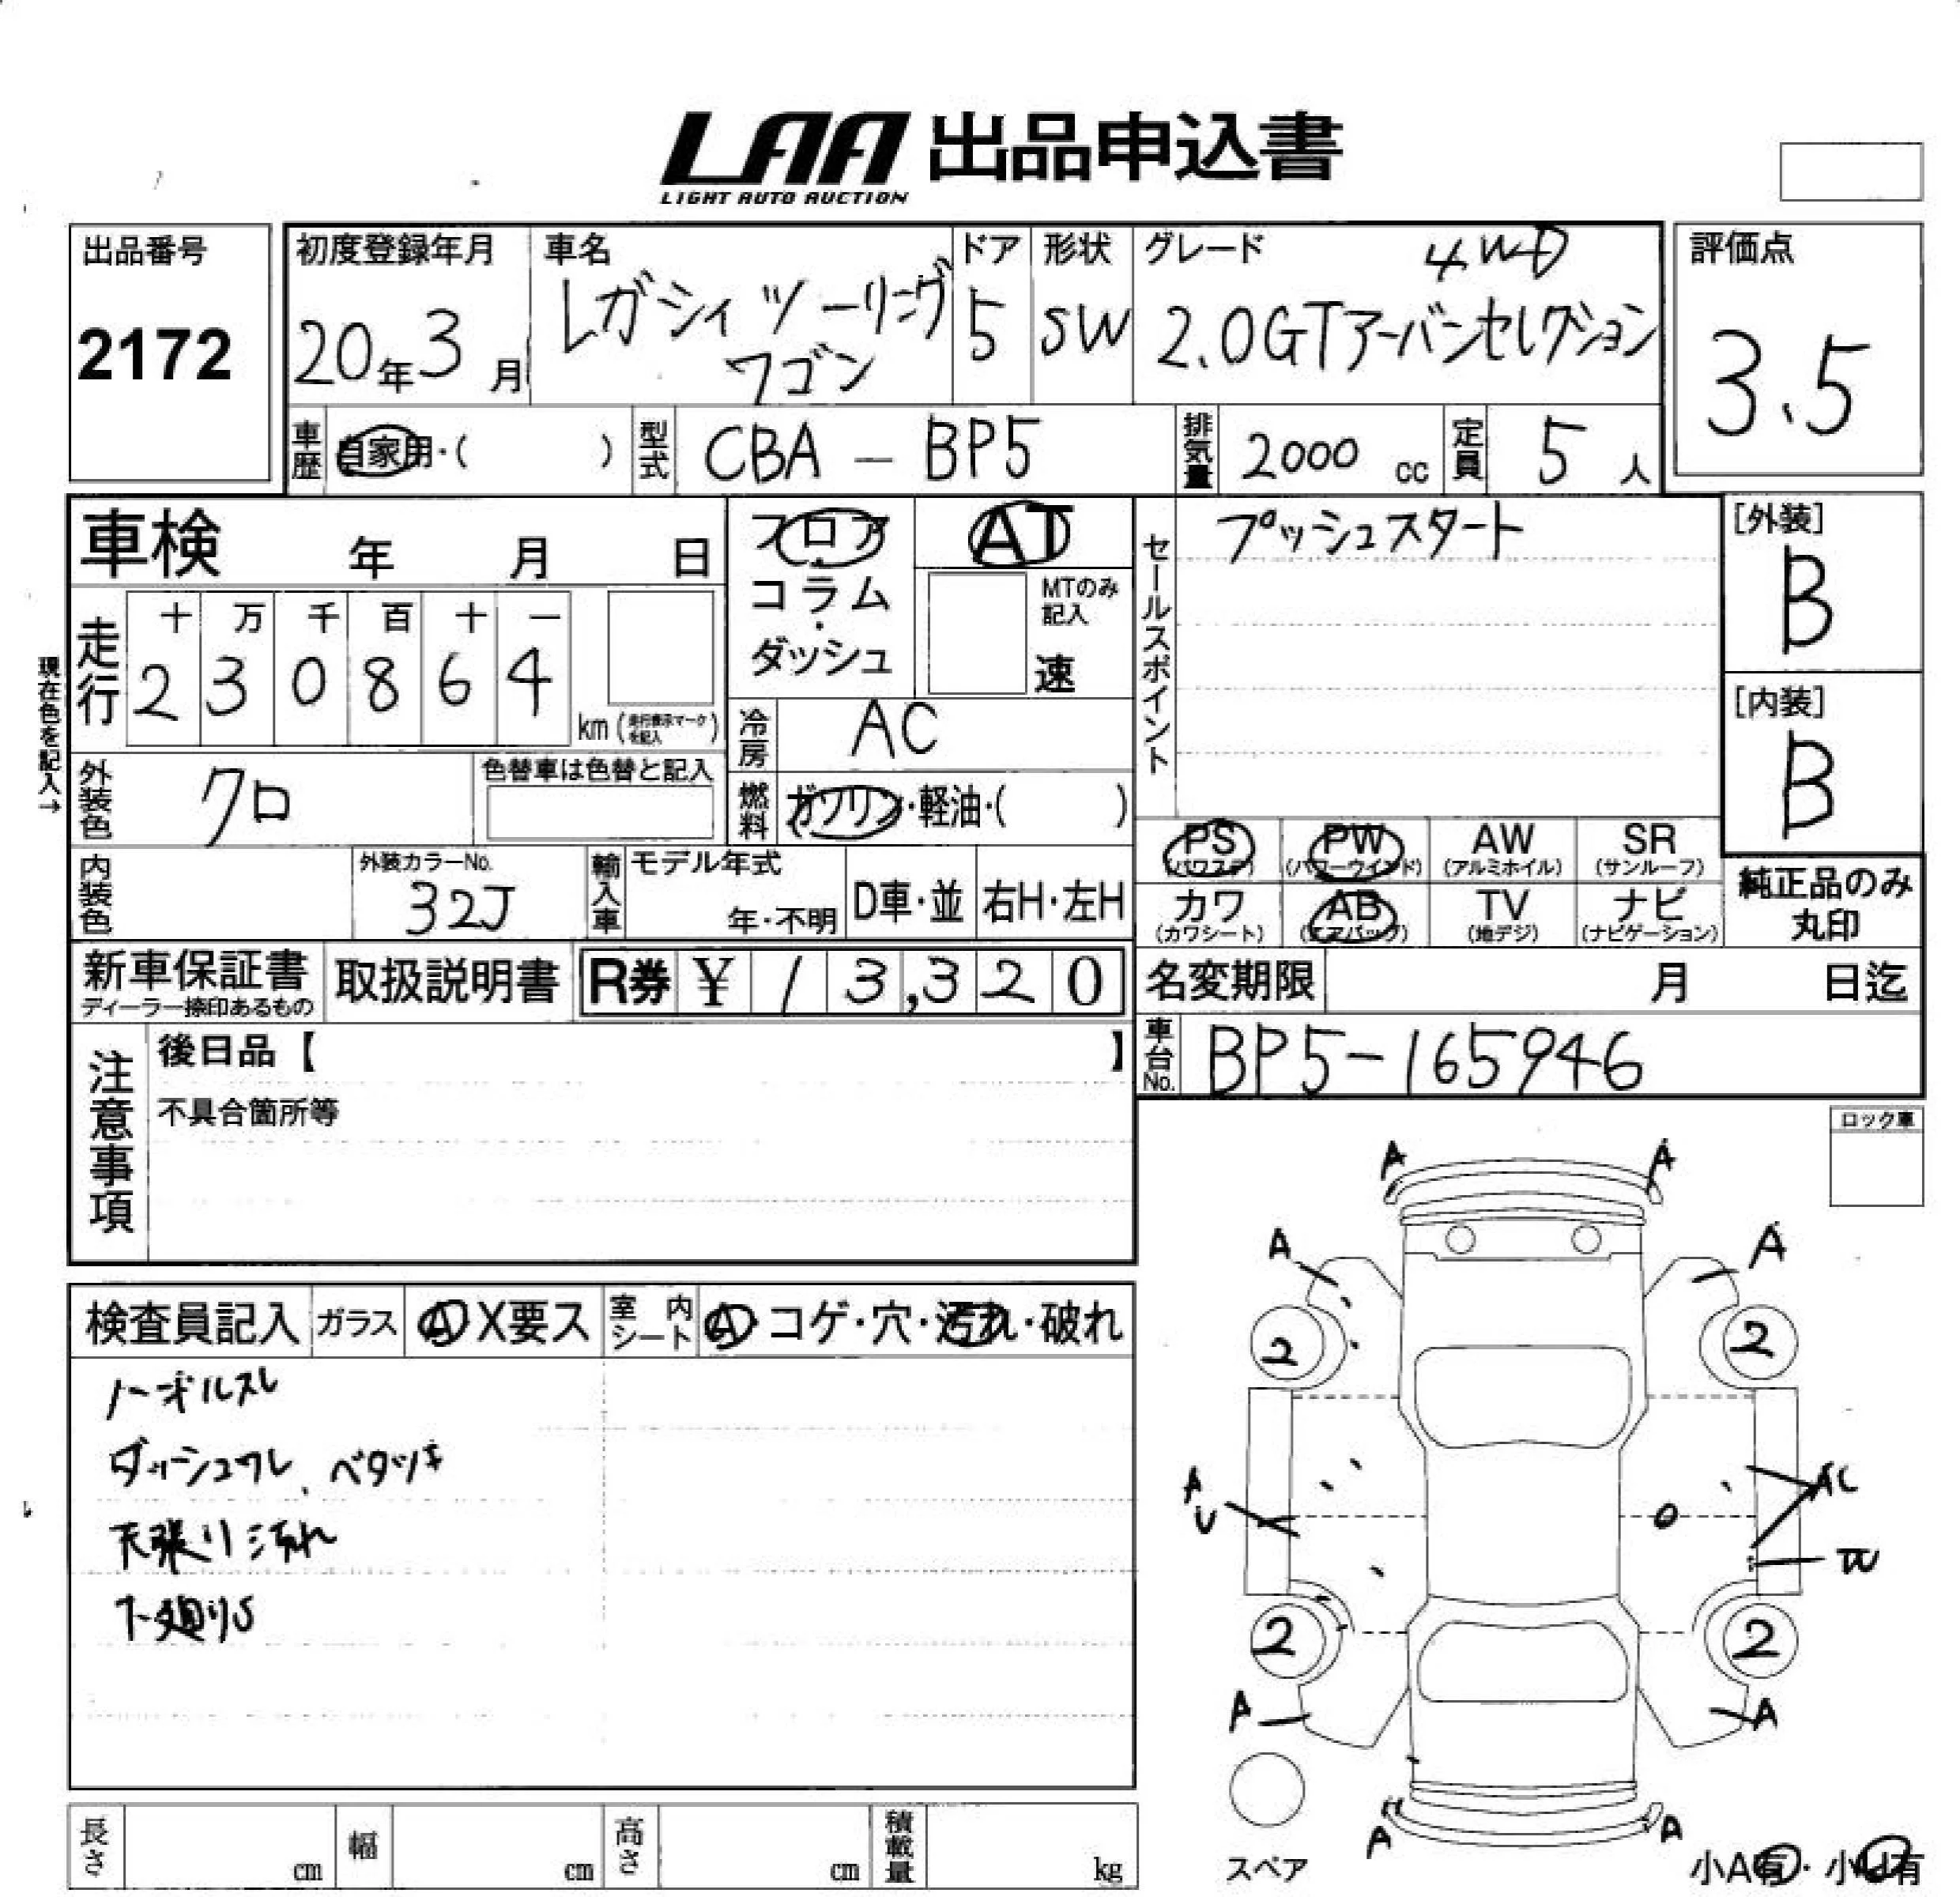 LAA 出品申込書
LIGHT AUTO AUCTION
出品番号
2172
初度登録年月
20年3月
車名
レガシィツーリング
ワゴン
ドア
5
形状
SW
グレード
4WD
2.0GTアーバンセレクション
評価点
3.5
車歴
自家用・( )
型式
CBA-BP5
排気量
2000 cc
定員
5人
車検 年 月 日
フロア・コラム・ダッシュ
AT
MTのみ記入
速
セールスポイント
プッシュスタート
[外装]
B
[内装]
B
現在色を記入→
走行
十 万 千 百 十 一
2 3 0 8 6 4
km (走行表示マークを記入)
冷房
AC
外装色
クロ
色替車は色替と記入
燃料
ガソリン・軽油・( )
内装色
外装カラーNo.
32J
輸入車
モデル年式
年・不明
D車・並
右H・左H
PS (パワステ)
PW (パワーウインド)
AW (アルミホイル)
SR (サンルーフ)
カワ (カワシート)
AB (エアバッグ)
TV (地デジ)
ナビ (ナビゲーション)
純正品のみ
丸印
新車保証書
ディーラー捺印あるもの
取扱説明書
R券 ¥ 13,320
名変期限 月 日迄
車台No.
BP5-165946
注意事項
後日品【 】
不具合箇所等
ロック車
検査員記入
ガラス
A X要ス
室内シート
A・コゲ・穴・汚れ・破れ
ダッシュワレ、ベタツキ
天張り汚れ
下廻りS
A A
A A
2 2
A
U
AC
2 2
A A
A A
スペア
小A有・小U有
長さ cm
幅 cm
高さ cm
積載量 kg